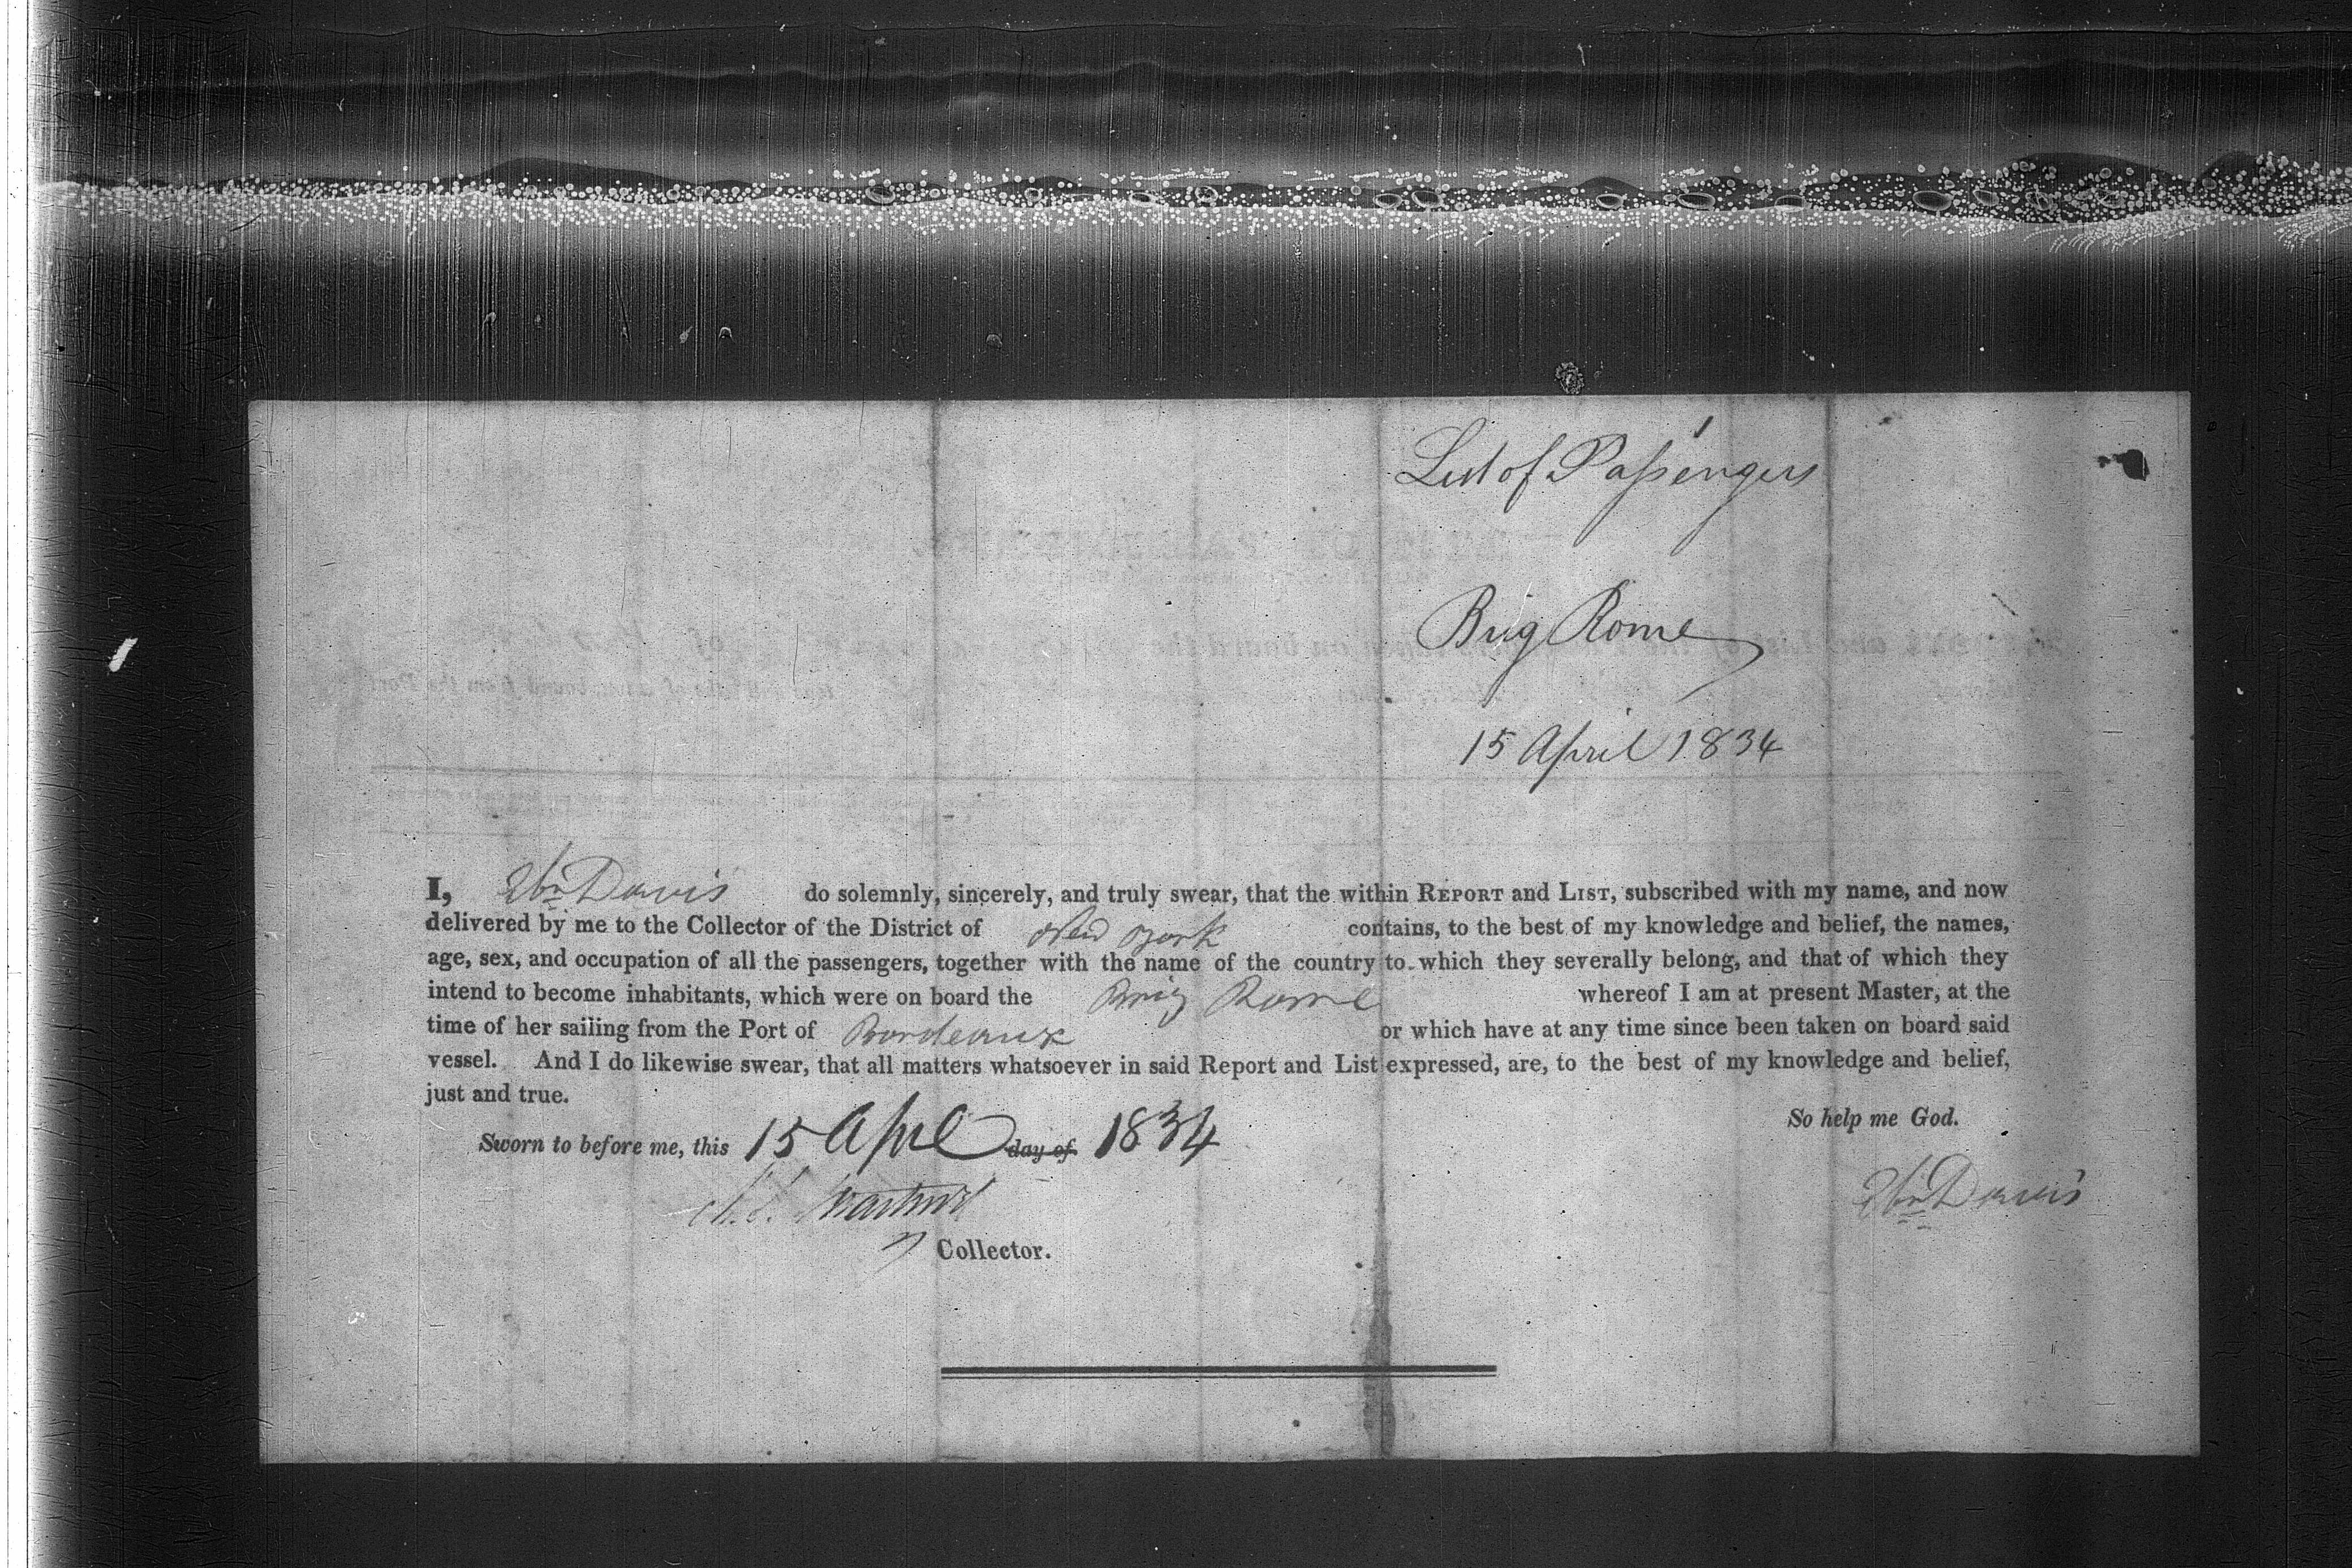 List of Passengers
Brig Rome
15 April 1834
I, Wm Davis do solemnly, sincerely, and truly swear, that the within REPORT and LIST, subscribed with my name, and now
delivered by me to the Collector of the District of New York contains, to the best of my knowledge and belief, the names,
age, sex, and occupation of all the passengers, together with the name of the country to which they severally belong, and that of which they
intend to become inhabitants, which were on board the Brig Rome whereof I am at present Master, at the
time of her sailing from the Port of Bordeaux or which have at any time since been taken on board said
vessel. And I do likewise swear, that all matters whatsoever in said Report and List expressed, are, to the best of my knowledge and belief,
just and true.
So help me God.
Sworn to before me, this 15 Apl day of 1834
Wm Davis
Collector.